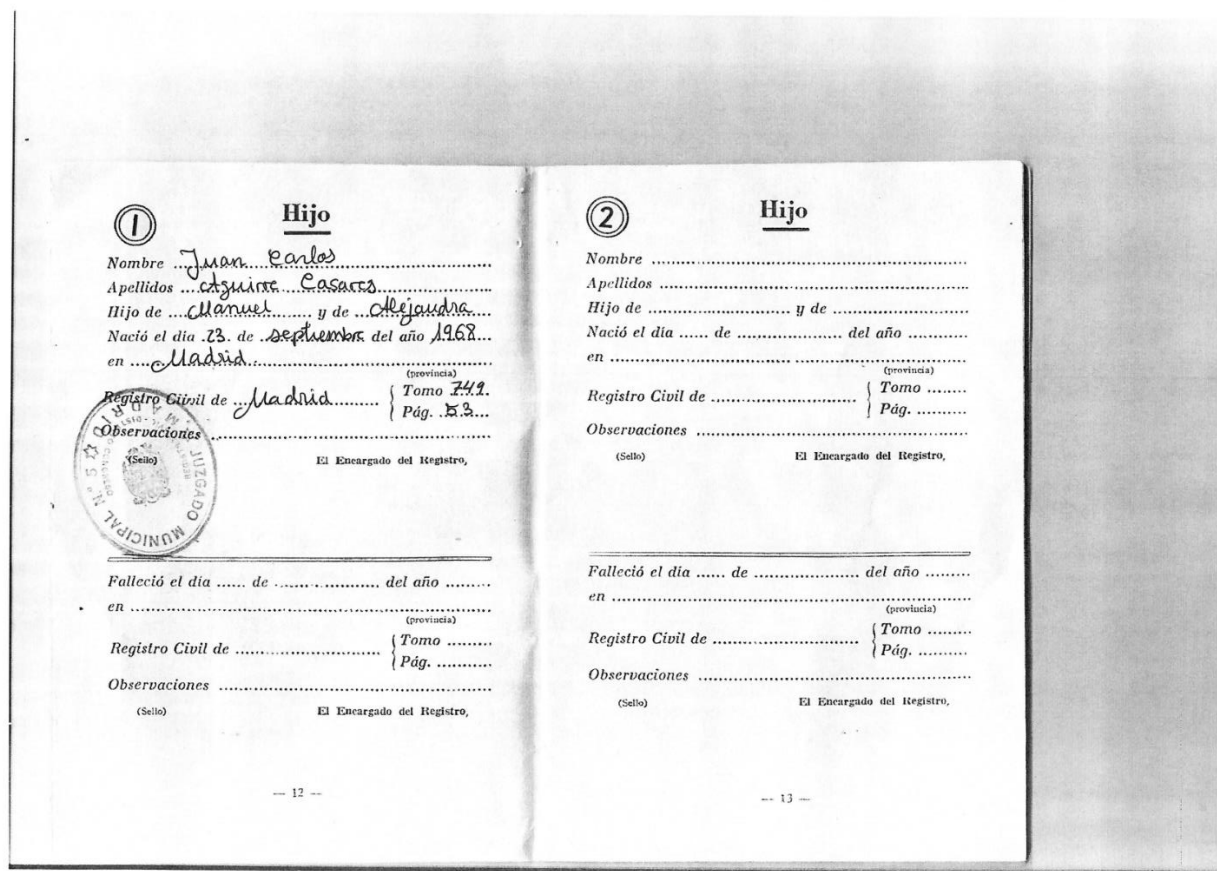 1 Hijo
Nombre Juan Carlos
Apellidos Aguirre Casares
Hijo de Manuel y de Alejandra
Nació el día 23. de septiembre del año 1968
en Madrid.
(provincia)
Registro Civil de Madrid { Tomo 749.
Pág. 53
Observaciones
(Sello) El Encargado del Registro,
JUZGADO MUNICIPAL N.º 5 ☆ MADRID
Falleció el día ...... de .................... del año ........
en ..........
(provincia)
Registro Civil de .......... { Tomo .......
Pág. ..........
Observaciones ..........
(Sello) El Encargado del Registro,
— 12 —
2 Hijo
Nombre ..........
Apellidos ..........
Hijo de .......... y de ..........
Nació el día ...... de .......... del año ........
en ..........
(provincia)
Registro Civil de .......... { Tomo .......
Pág. ..........
Observaciones ..........
(Sello) El Encargado del Registro,
Falleció el día ...... de .......... del año ........
en ..........
(provincia)
Registro Civil de .......... { Tomo ........
Pág. ..........
Observaciones ..........
(Sello) El Encargado del Registro,
— 13 —